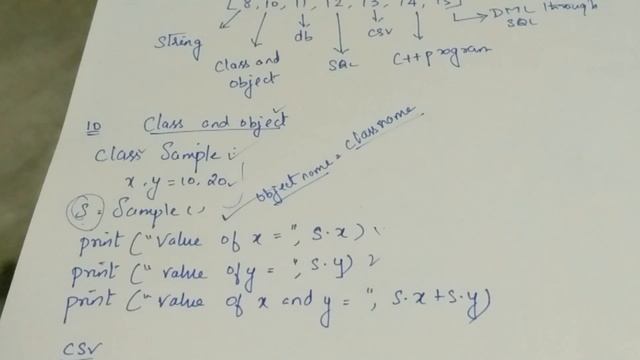 [8, 10, 11, 12, 13, 14, 15]
String
Class and object
db
SQL
CSV
C++ program
DML through SQL
10 Class and object
Class Sample:
x,y = 10,20
S = Sample()
object name = Class name
print ("Value of x = ", S.x)
print (" value of y = ", S.y)
print (" value of x and y = ", S.x+S.y)
CSV